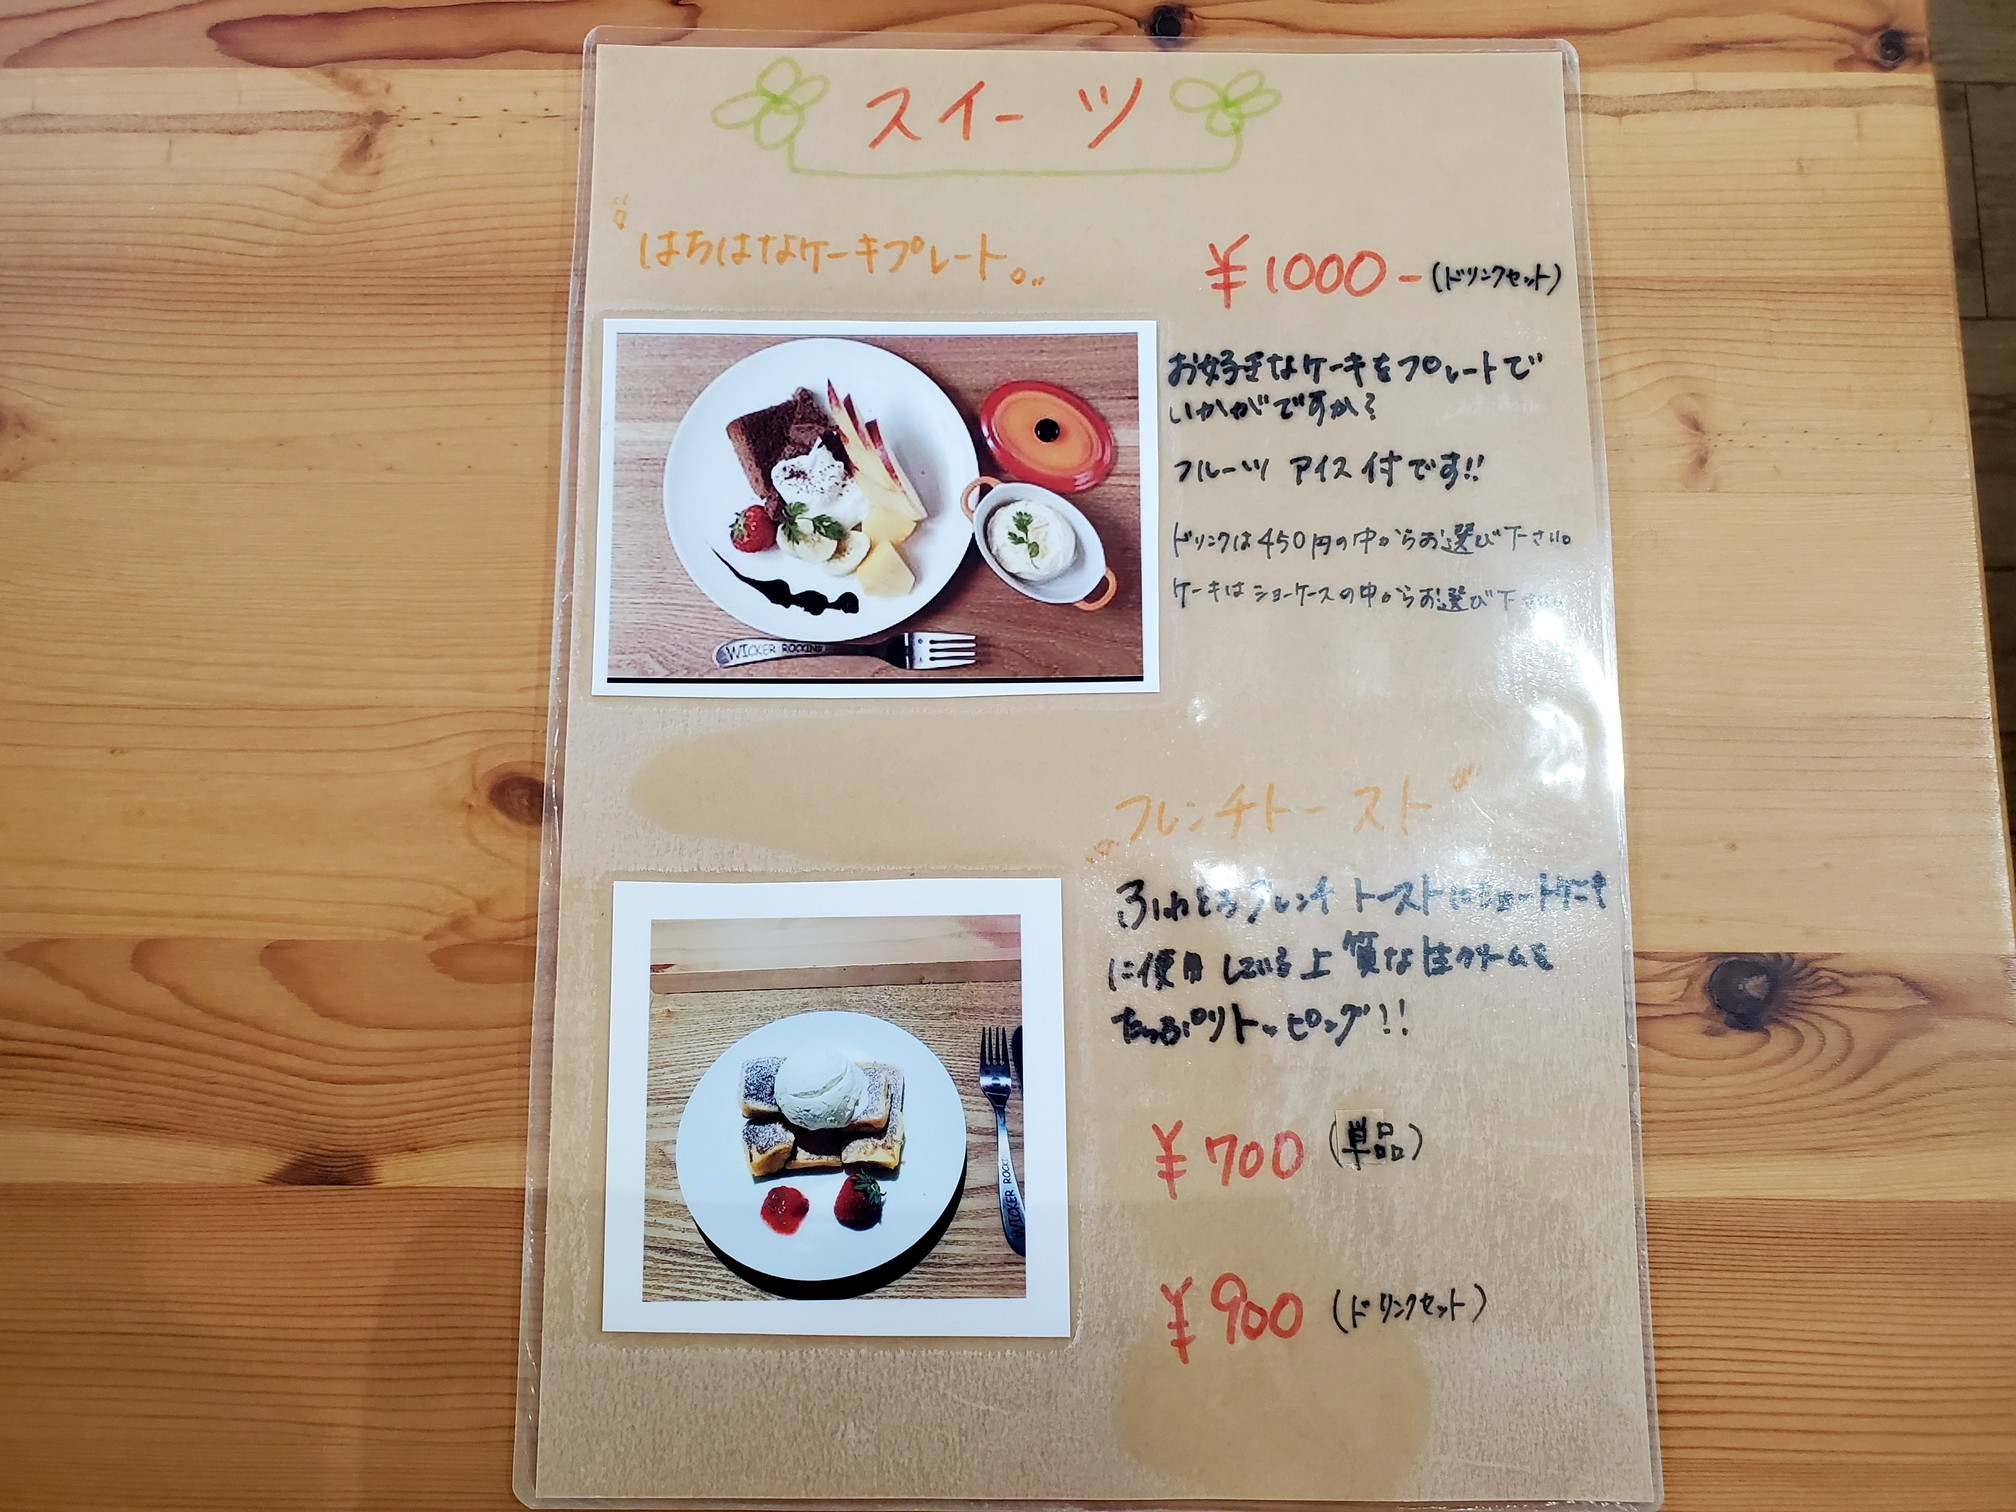 スイーツ
はちはなケーキプレート。
¥1000-(ドリンクセット)
お好きなケーキをプレートで
いかがですか?
フルーツ アイス付です!!
ドリンクは450円の中からお選び下さい。
ケーキはショーケースの中からお選び下さい
WICKER ROCKING
フレンチトースト
ふわとろフレンチトーストにショートケーキ
に使用している上質な生クリームを
たっぷりトッピング!!
¥700(単品)
¥900(ドリンクセット)
WICKER ROCK